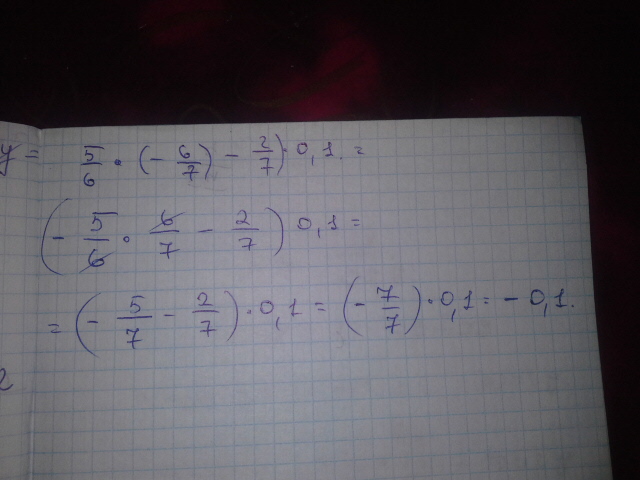 y = 5/6 · (- 6/7) - 2/7) · 0,1. =
(- 5/6 · 6/7 - 2/7) 0,1 =
= (- 5/7 - 2/7) · 0,1 = (- 7/7) · 0,1 = - 0,1.
2